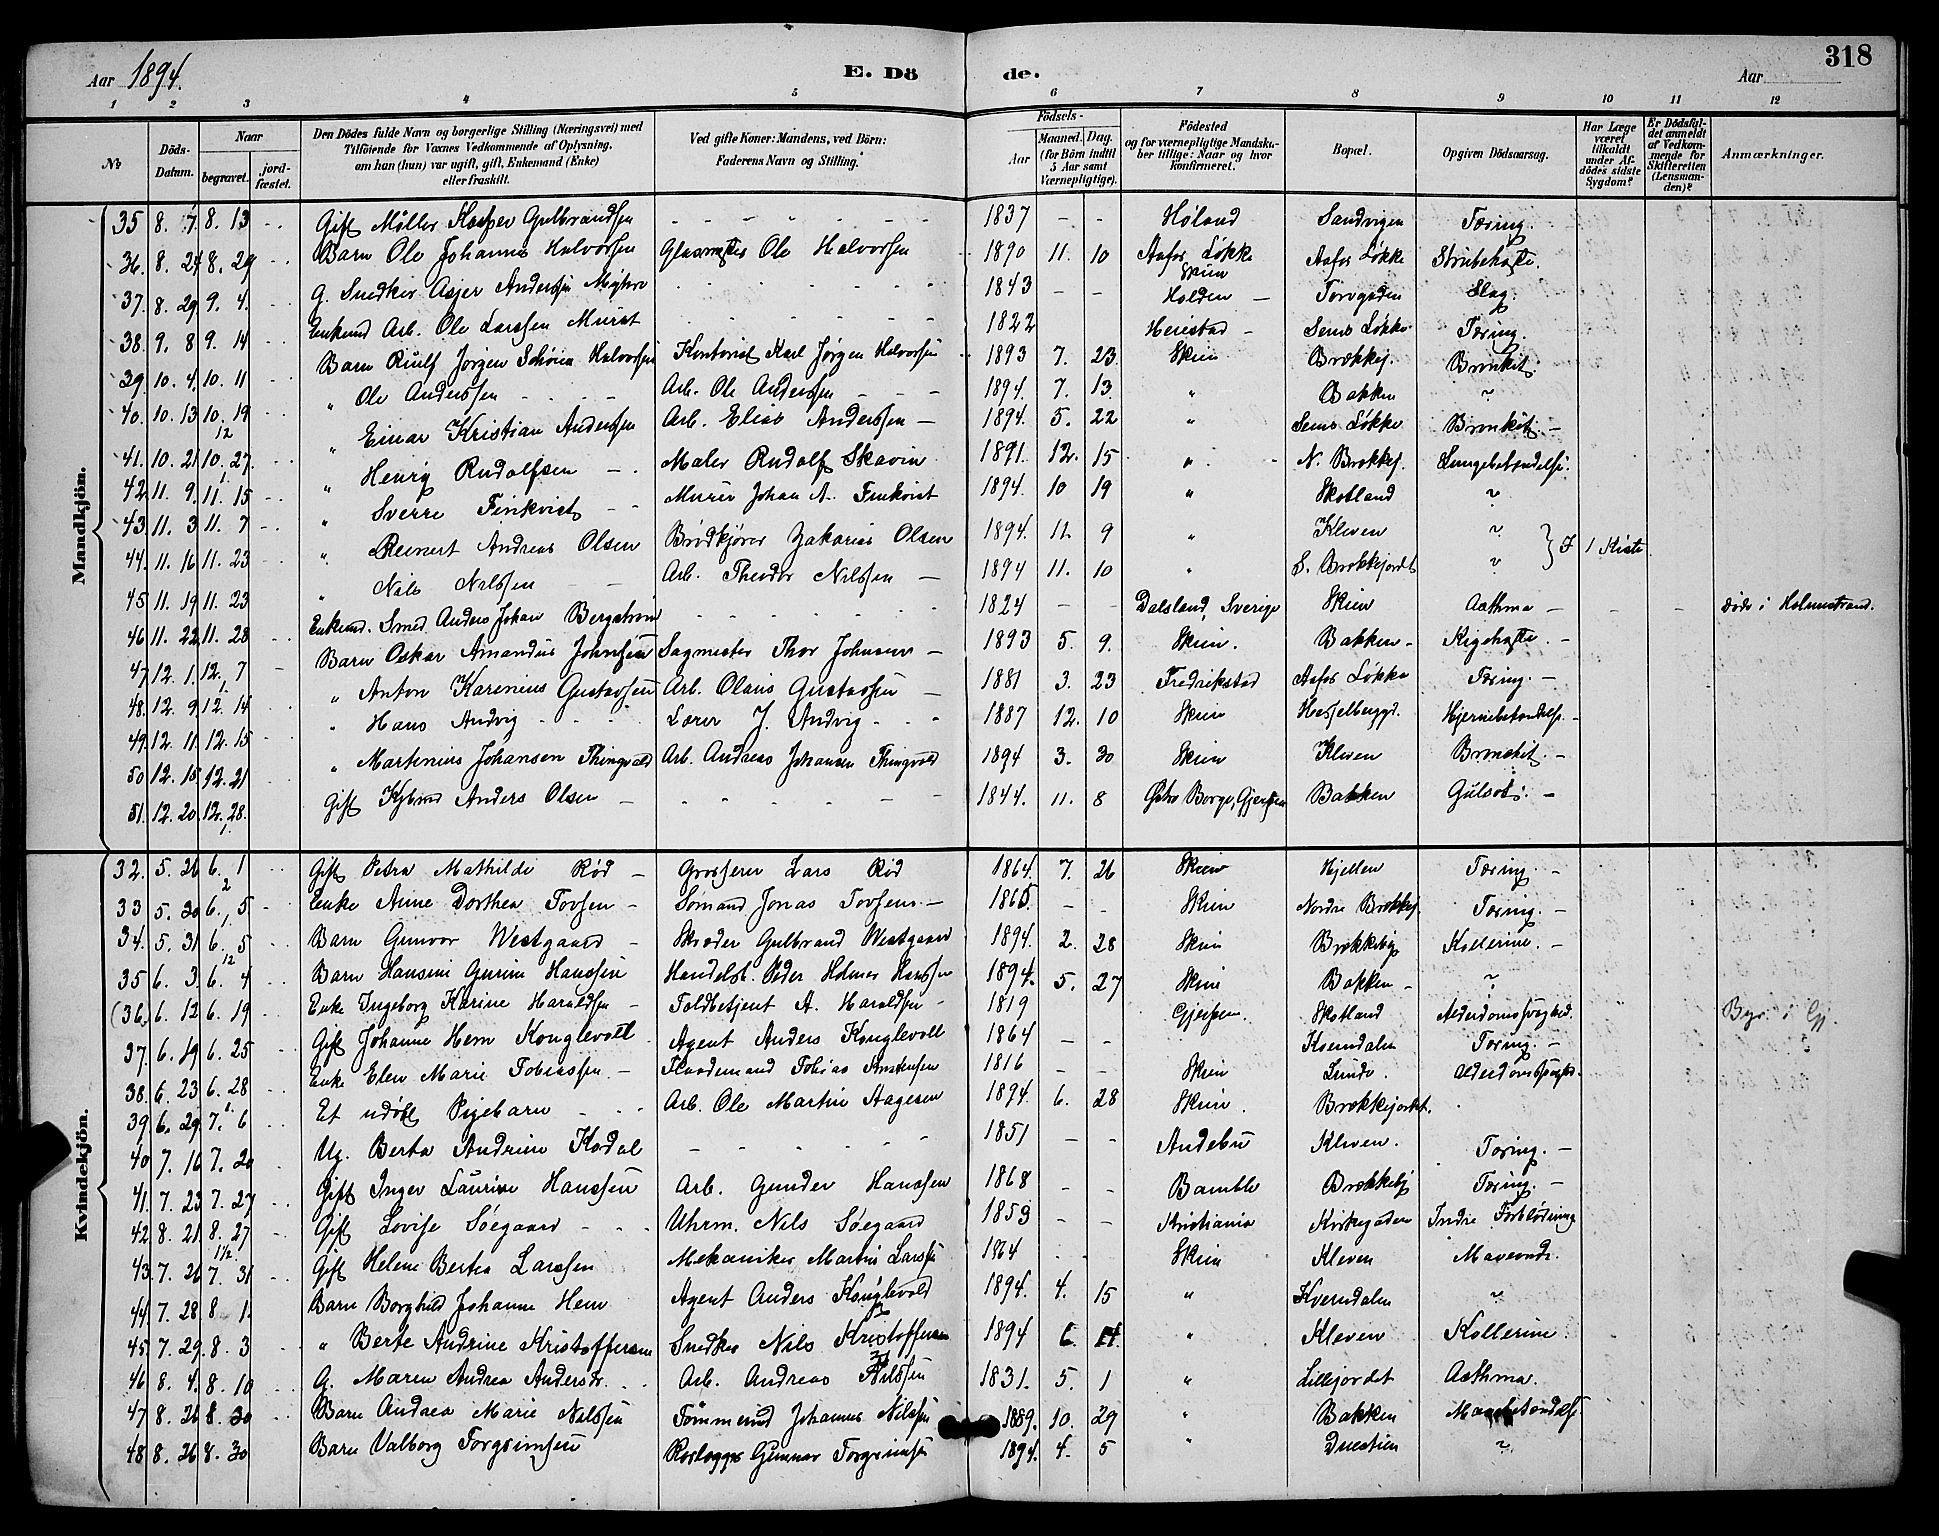 318
Aar 1894.
E. Dö de.
Aar
1 2 3 4 5 6 7 8 9 10 11 12
No
Döds-Datum.
Naar begravet. jordfæstet.
Den Dödes fulde Navn og borgerlige Stilling (Næringsvei) med Tilföiende for Voxnes Vedkommende af Oplysning, om han (hun) var ugift, gift, Enkemand (Enke) eller fraskilt.
Ved gifte Koner: Mandens, ved Börn: Faderens Navn og Stilling.
Födsels- Aar Maaned. Dag. (for Börn indtil 5 Aar samt Værnepligtige).
Födested og for værnepligtige Mandskaber tillige: Naar og hvor konfirmeret.
Bopæl.
Opgiven Dödsaarsag.
Har Læge været tilkaldt under Afdödes sidste Sygdom?
Er Dödsfaldet anmeldt af Vedkommende for Skifteretten (Lensmanden)?
Anmærkninger.
Mandkjön.
35 8. 7 8. 13 Gift Møller Kasper Gulbrandsen 1837 - - Høland Sandvigen Tæring.
36. 8. 24 8. 29 Barn Ole Johannes Halvorsen Glasmester Ole Halvorsen 1890 11. 10 Aafos Løkke Skien Aafos Løkke Strubehoste.
37. 8. 29 9. 4. G. Snedker Asjer Anderssen 1843 - - Holden Torvgaden Slag.
38. 9. 8 9. 14 Enkemd Arb. Ole Larssen Murst 1822 Herrestad Sems Løkke Tæring
39 10. 4. 10. 11 Barn Jørgen Halvorsen Kontorist Karl Jørgen Halvorsen 1893 7. 23 Skien Brekkej. Bronkit.
40. 10. 13 10. 19 " Ole Anderssen Arb. Ole Anderssen 1894. 7. 13. " Bakken "
41. 10. 21 10. 27 " Einar Kristian Anderssen Arb. Elias Anderssen 1894. 5. 22 " Sems Løkke Bronkit.
42 11. 9. 11. 15 " Henry Rudolfsen Maler Rudolf Skavin 1891. 12. 15 " N. Brekkej. Lungebetændelse.
43. 11. 3 11. 7 " Sverre Finkvist Murer Johan A. Finkvist 1894. 10 19 " Skotland "
44. 11. 16 11. 23 " Reinert Andreas Olsen Brødkjører Zakarias Olsen 1894. 11. 9 " Kleven " } I 1 Kiste
45 11. 19 11. 23 " Nils Nilssen Arb. Theodor Nilssen 1894 11. 10 " S. Brekkejordet "
46 11. 22 11. 28 Enkemd. Smed Anders Johan Bergstrøm 1824 - - Dalsland, Sverige Skien Asthma Døde i Holmestrand.
47 12. 1. 12. 7 Barn Oskar Amandus Johnsen Sagmester Thor Johnsen 1893 5. 9. Skien. Bakken Kighoste.
48. 12. 9 12. 14 " Anton Karenius Gustavsen Arb. Olaus Gustavsen 1881 3. 23 Fredrikstad Aafos Løkke Tæring.
49 12. 11. 12. 15 " Hans Andvig Lærer J. Andvig 1887 12. 10 Skien Hesselberggd. Hjernebetændelse
50 12. 15 12. 21 " Martinius Johansen Thingvold Arb. Andreas Johansen Thingvold 1894 3. 30 Skien Kleven Bronkit.
51. 12. 20 12. 28. Gift Anders Olsen 1844. 11. 8 Østre Borge, Gjerpen Bakken Gulsot.
Kvindekjön.
32. 5. 26 6. 1 Gift Petra Mathilde Rød Grosserer Lars Rød 1864. 7. 26 Skien Hjellen Tæring.
33 5. 30 6. 5 Enke Anne Dorthea Tovsen Sømand Jonas Tovsen 1865. - - Skien Nordre Brekkej. Tæring.
34. 5. 31 6. 5 Barn Gunvor Westgaard Skræder Gulbrand Westgaard 1894. 2. 28 Skien Brekkebyg Kollerine.
35 6. 3 6. 4 Barn Hansine Gurine Hanssen Handelsb. Peder Holmer Hanssen 1894. 5. 27 Skien Bakken "
(36.) 6. 12 6. 19 Enke Ingeborg Karine Haraldsen Toldbetjent A. Haraldsen 1819 Gjerpen. Skotland Alderdomssvaghed. Bgr. i Gj.
37. 6. 19 6. 25 Gift Johanne Hem Konglevoll Agent Anders Konglevoll 1864 - - Kverndalen Tæring.
38. 6. 23 6. 28 Enke Elen Marie Tobiassen Tobias 1816 - - Skien Lunde. Alderdomssvaghed.
39 6. 29 7. 6 Et udøbt Pigebarn Arb. Ole Martin Aagesen 1894. 6. 28 Skien. Brekkejordet.
40 7. 16 7. 20 Ug. Berta Andrine Kodal 1851 - - Andebu Kleven. Tæring.
41. 7. 23 7. 27 Gift Inger Laurine Hanssen Arb. Gunder Hanssen 1868 - - Bamble Brekkebyg Tæring.
42 8. 21 8. 27 Gift Lovise Søegaard Uhrm. Nils Søegaard 1853 - - Kristiania Kirkegaden Indre Forblødning
43. 7. 26 7. 31 Gift Helene Bertea Larssen Mekaniker Martin Larssen 1864 Skien Kleven Maveonde.
44. 7. 28 8 1. Barn Borghild Johanne Hem Agent Anders Konglevold 1894. 4. 15 " Kverndalen "
45. 7. 29 8. 3 " Berte Andrine Kristoffersen Snedker Nils Kristoffersen 1894 6. " Kleven Kollerine.
46 8. 4. 8. 10 G. Maren Andrea Andersdr. Arb. Andreas Nilssen 1831. 5. 1 " Lillejordet Asthma.
47 8. 26 8. 30 Barn Andrea Marie Nilssen Tømmermd Johannes Nilssen 1889. 10. 29 " Bakken
48. 8. 26 8. 30 Barn Valborg Torgrimsen Gunnar Torgrimsen 1894. 4. 5 " Duestien "